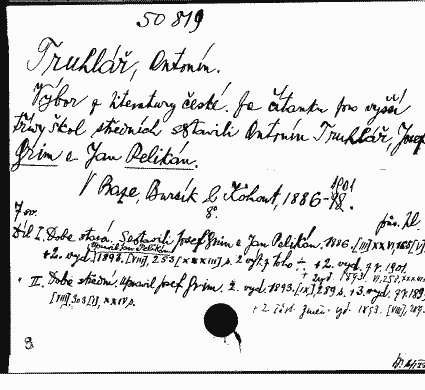 50819
Truhlář, Antonín.
Výbor z literatury české. Za čítanku pro vyšší
třídy škol středních sestavili Antonín Truhlář, Josef
Grim a Jan Pelikán.
V Praze, Bursík & Kohout, 1886-98.
1901
8°.
7 sv.
Díl I. Doba stará. Sestavili Josef Grim a Jan Pelikán. 1886. [III] XXVI, 165 [I]
+2. vyd. 1893. [VIII], 253 [XXXIII] s. + 2. vyd. 1901.
II. Doba střední. Upravil Josef Grim. 2. vyd. 1893. [IX] 289 s. +3. vyd. 189
[VIII] 303 [I], XXIV s.
+ 2. část. změn. vyd. 1893. [VIII],